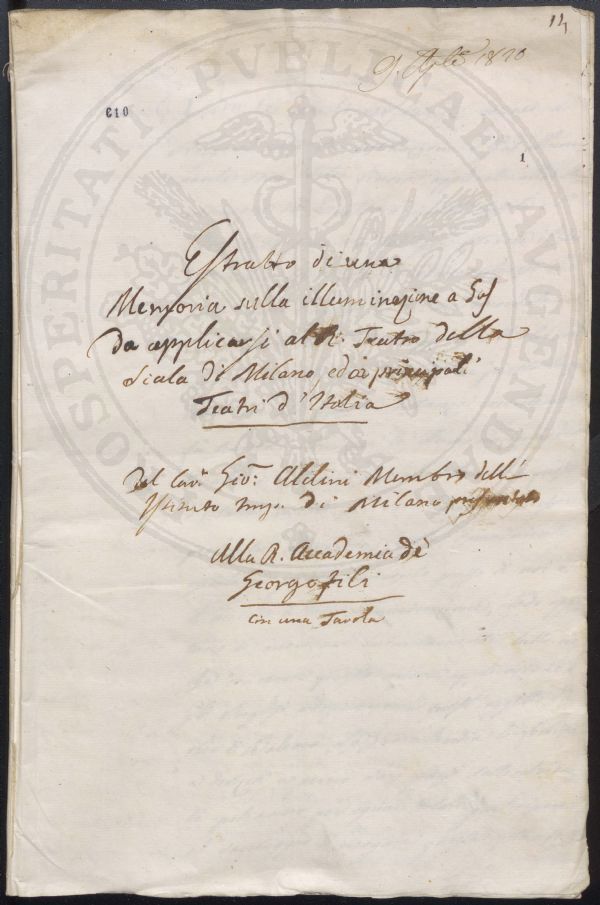 14
9. Aple 1820
610
1
PROSPERITATI PUBLICAE AUGENDAE
Estratto di una
Memoria sulla illuminazione a Gas
da applicarsi al R. Teatro della
Scala di Milano, ed ai principali
Teatri d'Italia
del Cav. Gio: Aldini Membro dell'
Istituto Imp. di Milano presentata
Alla R. Accademia de'
Georgofili
Con una Tavola